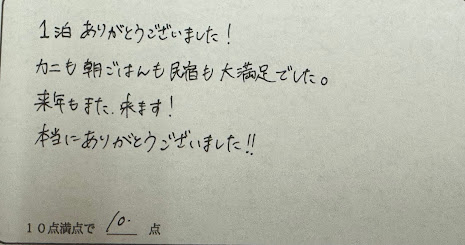 1泊 ありがとうございました！
カニも朝ごはんも民宿も大満足でした。
来年もまた、来ます！
本当にありがとうございました!!
10点満点で 10. 点